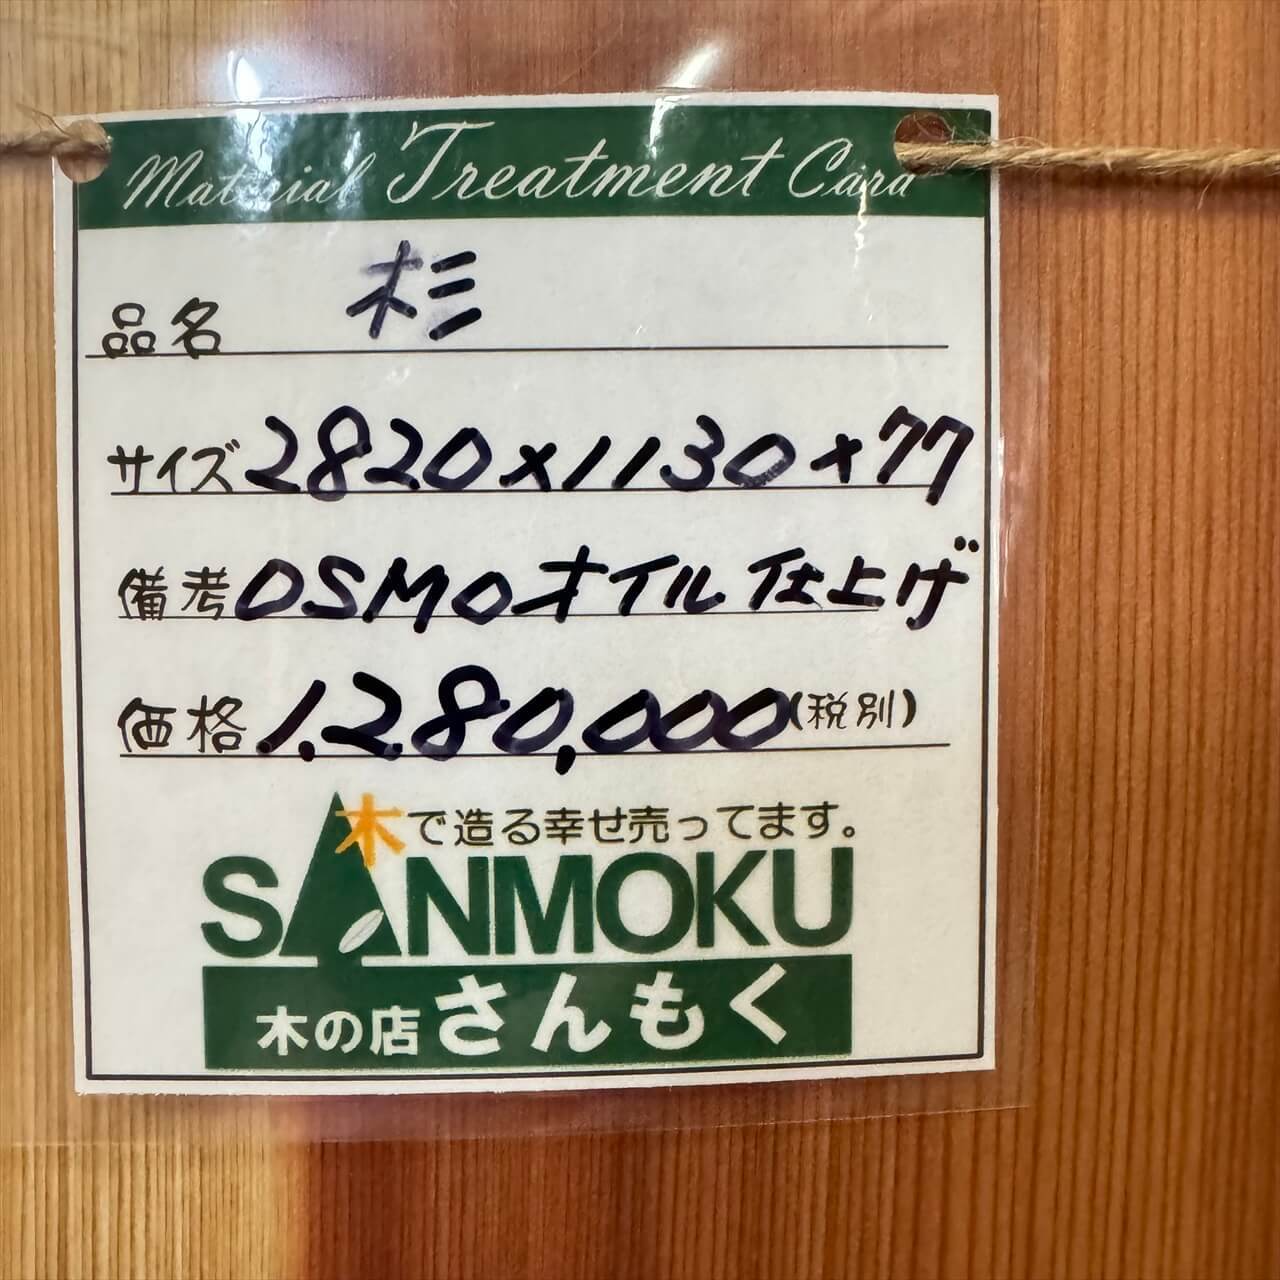 Material Treatment Card
品名 杉
サイズ 2820×1130×77
備考 OSMOオイル仕上げ
価格 1,280,000(税別)
木で造る幸せ売ってます。
SANMOKU
木の店さんもく